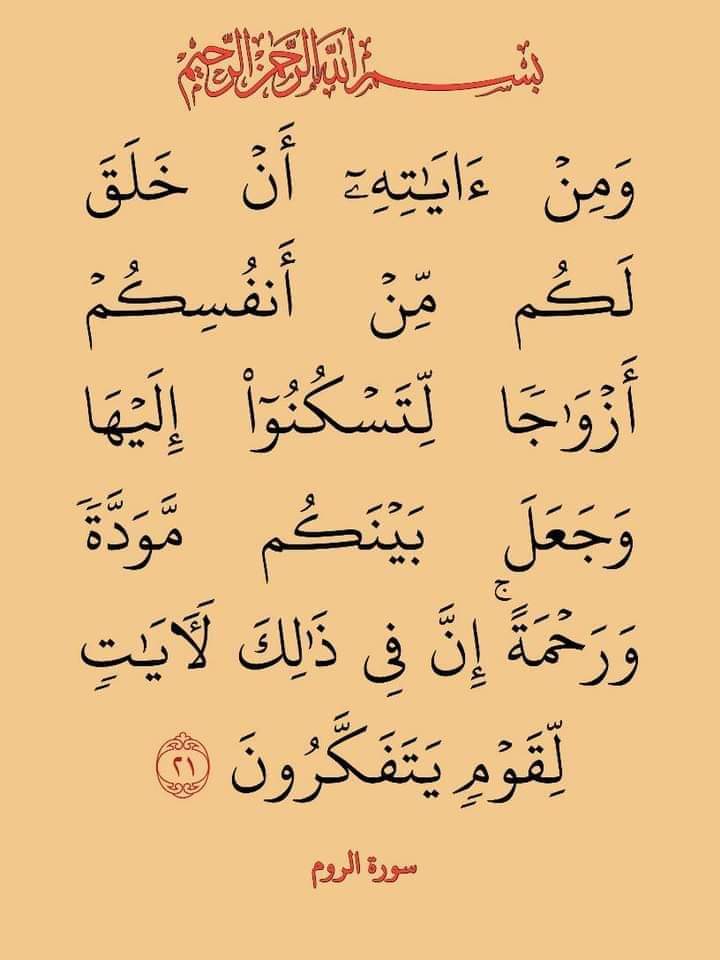 بسم الله الرحمن الرحيم
وَمِنْ ءَايَـٰتِهِۦٓ أَنْ خَلَقَ
لَكُم مِّنْ أَنفُسِكُمْ
أَزْوَٰجًا لِّتَسْكُنُوٓا۟ إِلَيْهَا
وَجَعَلَ بَيْنَكُم مَّوَدَّةً
وَرَحْمَةً ۚ إِنَّ فِى ذَٰلِكَ لَـَٔايَـٰتٍ
لِّقَوْمٍ يَتَفَكَّرُونَ ٢١
سورة الروم